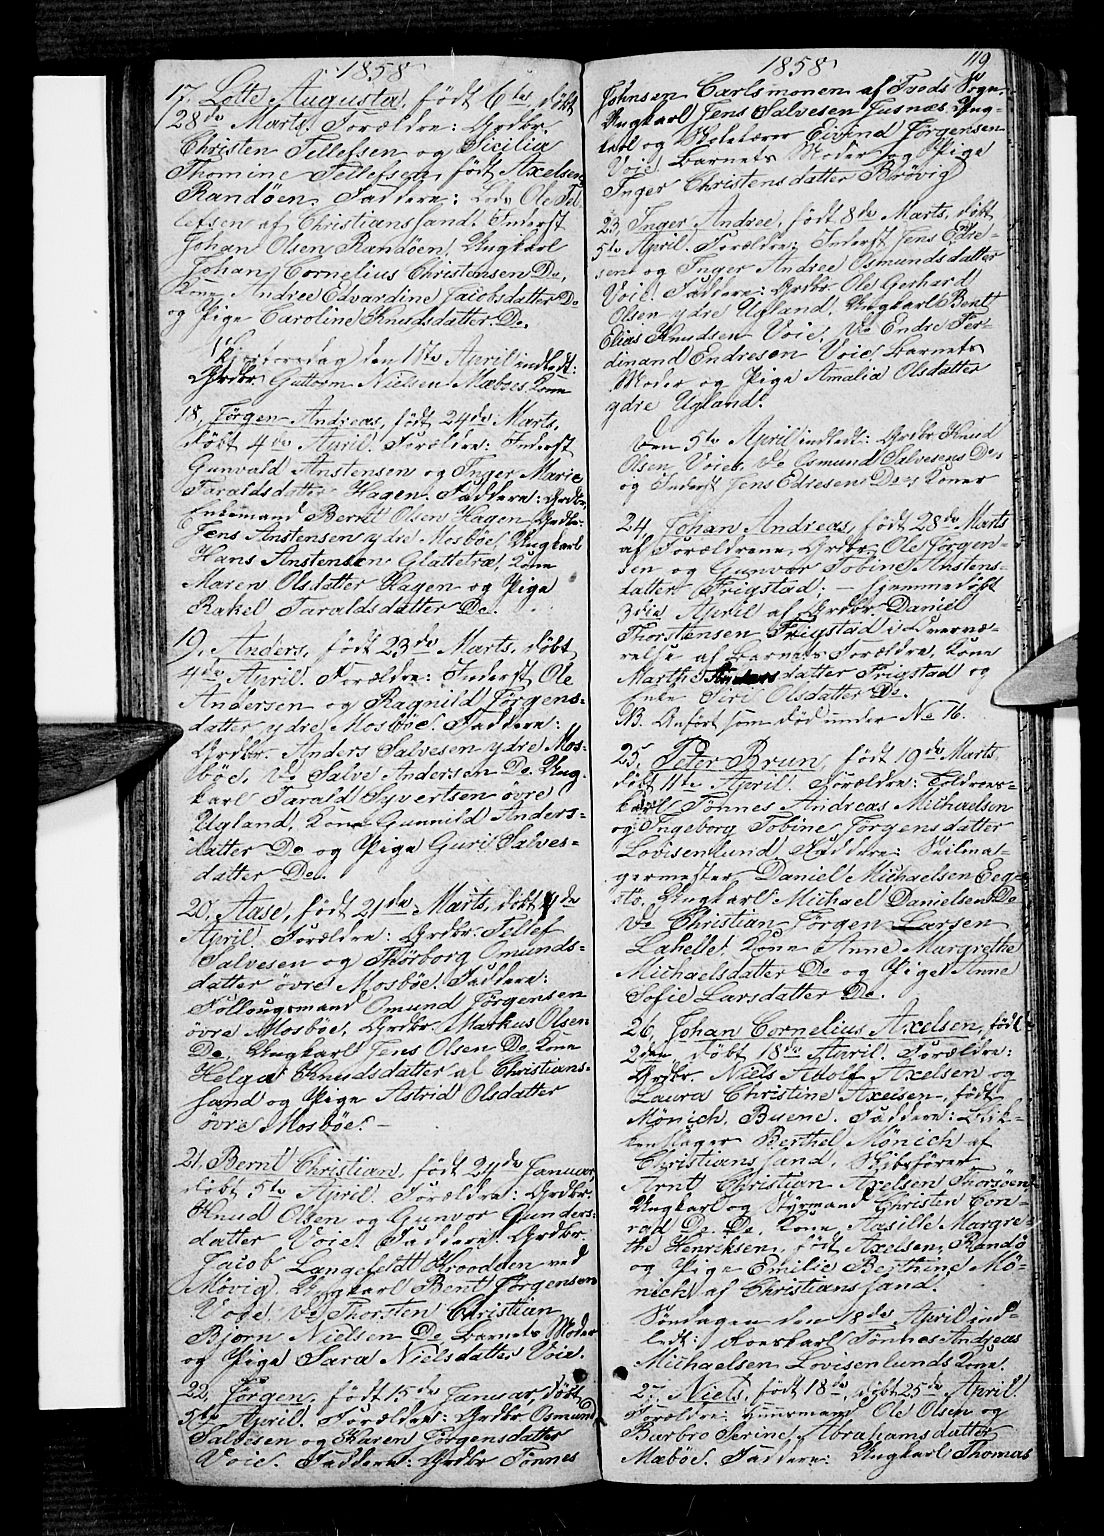 1858
17, Lotte Augusta, født 6te, døbt
28de Marts. Forældre: Grdbr.
Christen Tellefsen og Sicilia
Thomine Tellefsen, født Axelsen
Randøen. Faddere: Lods Ole Tel-
lefsen af Christianssand, Inderst
Johan Olsen Randøen, Ungkarl
Johan Cornelius Christensen De,
Kone Andree Edvardine Jacobsdatter De
og Pige Caroline Knudsdatter De.
Skjertorsdag den 1ste April indledt:
Grdbr. Guttorm Nielsen Mæbøes Kone
18, Jørgen Andreas, født 24de Marts,
døbt 4de April. Forældre: Inderst
Gunvald Anstensen og Inger Marie
Taraldsdatter Hagen. Faddere: Grdbr.
Enkemand Bernt Olsen Hagen, Grdbr.
Jens Anstensen ydre Mosbøe, Ungkarl
Hans Anstensen Glattetræ, Kone
Maren Olsdatter Hagen og Pige
Rakel Taraldsdatter De.
19, Anders, født 23de Marts, døbt
4de April. Forældre: Inderst Ole
Andersen og Ragnild Jørgens-
datter ydre Mosbøe. Faddere:
Grdbr. Anders Salvesen ydre Mos-
bøe, Do Salve Andersen De, Ung-
karl Tarald Syvertsen øvre
Ugland, Kone Gunnild Anders-
datter De og Pige Guri Salves-
datter De.
20, Aase, født 21de Marts, døbt 4de
April. Forældre: Grdbr. Tellef
Salvesen og Thorborg Omunds-
datter øvre Mosbøe. Faddere:
Follougsmand Omund Jørgensen
øvre Mosbøe, Grdbr. Markus Olsen
De, Ungkarl Jens Olsen De, Kone
Helga Knudsdatter af Christians-
sand og Pige Astrid Olsdatter
øvre Mosbøe.
21, Bernt Christian, født 24de Januar,
døbt 5te April. Forældre: Grdbr.
Knud Olsen og Gunvor Gunders-
datter Voie. Faddere: Grdbr.
Jacob Langefeldt Krodden ved
Møvig, Ungkarl Bent Jørgensen
Voie, Do Thorsten Christian
Bjorn Nielsen De, Barnets Moder
og Pige Sara Nielsdatter Voie.
22, Jørgen, født 15de Januar, døbt
5te April. Forældre: Grdbr. Osmund
Salvesen og Karen Jørgensdatter
Voie. Faddere: Grdbr. Tønnes
1858
119
Johnsen Carlsmonen af Fjods Sogn,
Ungkarl Jens Salvesen Fusnæs, Ung-
karl og Matros Eivind Jørgensen
Voie, Barnets Moder og Pige
Inger Christensdatter Brøvig
23, Inger Andree, født 8de Marts, døbt
5te April. Forældre: Inderst Jens Edre-
sen og Inger Andree Osmundsdatter
Voie. Faddere: Grdbr. Ole Gerhard
Olsen ydre Ugland, Ungkarl Bent
Elias Knudsen Voie, Do Endre Fer-
dinand Endresen Voie, Barnets
Moder og Pige Amalia Olsdatter
ydre Ugland.
Den 5te April indledt: Grdbr. Knud
Olsen Voies, Do Osmund Salvesens Des
og Inderst Jens Edresens Des Koner
24, Johan Andreas, født 28de Marts
af Forældrene, Grdbr. Ole Jørgen-
sen og Gunvor Tobine Anstens-
datter Frigstad; – hjemmedøbt
3die April af Grdbr. Daniel
Thorstensen Frigstad i Overvæ-
relse af Barnets Forældre, Kone
Marthe Andersdatter Frigstad og
Enke Siri Olsdatter De.
NB. Anført som død under No 16.
25, Peter Brun, født 19de Marts,
døbt 11te April. Forældre: Toldroers-
karl Tønnes Andreas Michaelsen
og Ingeborg Tobine Jørgensdatter
Lovisenlund. Faddere: Seilma-
germester Daniel Michaelsen Eeg-
sto, Ungkarl Michael Danielsen De
Do Christian Jørgen Larsen
Lahelle, Kone Anne Margrethe
Michaelsdatter De og Pige Anne
Sofie Larsdatter De.
26, Johan Cornelius Axelsen, født
2den, døbt 18de April. Forældre:
Grdbr. Niels Adolf Axelsen og
Laura Christine Axelsen, født
Mönich, Buene. Faddere: Blik-
kenslager Berthel Mönich af
Christianssand, Skibsfører
Arnt Christian Axelsen Thorsøen,
Ungkarl og Styrmand Christen Con-
rad De De, Kone Aasille Margre-
the Henriksen, født Axelsen, Randø
og Pige Emilie Berthine Mö-
nich af Christianssand.
Søndagen den 18de April ind-
ledt: Roerskarl Tønnes Andreas
Michaelsen Lovisenlunds Kone.
27, Niels, født 18de, døbt 25de April.
Forældre: Huusmand Ole Olsen og
Barbro Serine Abrahamsdatter
Mæbøe. Faddere: Ungkarl Thomas